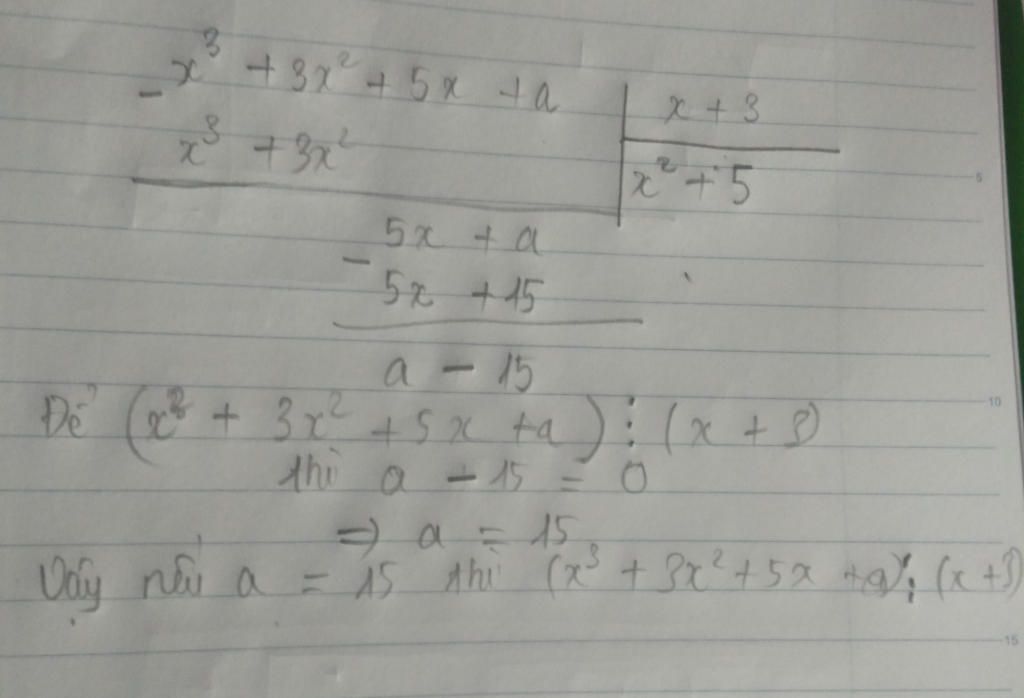 x³ + 3x² + 5x + a | x + 3
- x³ + 3x² | x² + 5
5x + a
- 5x + 15
a - 15
Để (x³ + 3x² + 5x + a) ⋮ (x + 3)
thì a - 15 = 0
⇒ a = 15
Vậy nếu a = 15 thì (x³ + 3x² + 5x + a) ⋮ (x + 3)
5
10
15